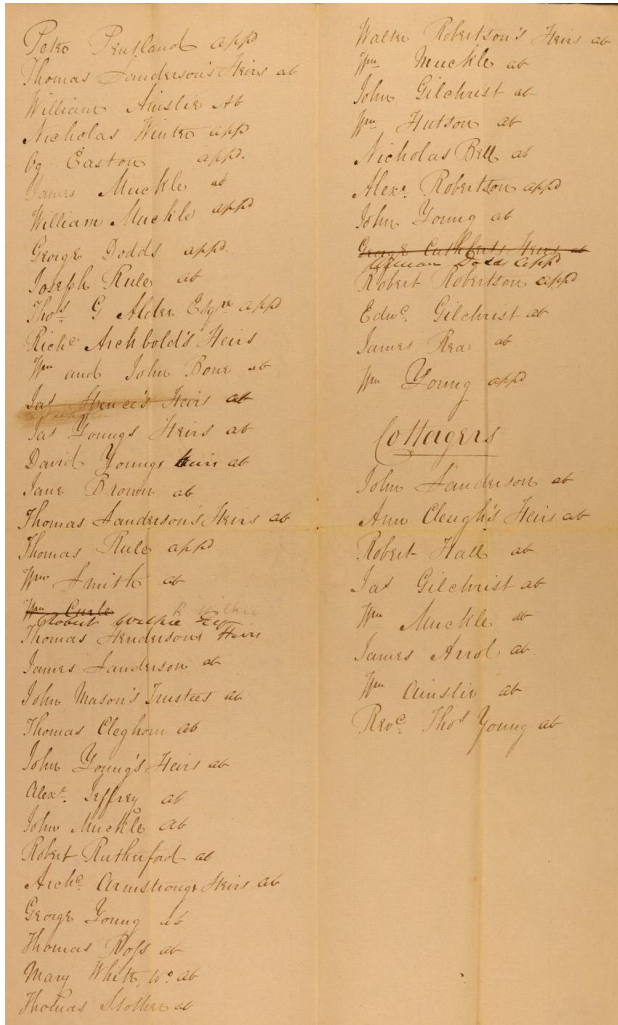 Peter Pentland appd
Thomas Sanderson's Heirs ab
William Ainslie Ab
Nicholas Winter appd
Geo Easton appd.
James Muckle ab
William Muckle appd
George Dodds appd.
Joseph Rule ab
Thos. G Alder Esqre appd
Richd Archbold's Heirs
Wm and John Bone ab
Jas Spence's Heirs ab
Jas Youngs Heirs ab
David Youngs heirs ab
Jane Brown ab
Thomas Sanderson's Heirs ab
Thomas Rule appd
Wm Smith ab
Wm Curle R Wilkie
Robert Wilkie
Thomas Hendersons Heirs
James Sanderson ab
John Mason's Trustees ab
Thomas Cleghorn ab
John Young's Heirs ab
Alexr. Jeffrey ab
John Muckle ab
Robert Rutherford ab
Archd. Armstrongs Heirs ab
George Young ab
Thomas Ross ab
Mary White, Wo ab
Thomas Stother ab
Walter Robertson's Heirs ab
Wm Muckle ab
John Gilchrist ab
Wm Hutson ab
Nicholas Bell ab
Alexr. Robertson appd
John Young ab
George Cuthberts Heirs ab
Dodd appd
Robert Robertson appd
Edwd. Gilchrist ab
James Rea ab
Wm Young appd
Cottagers
John Sanderson ab
Ann Cleugh's Heirs ab
Robert Hall ab
Jas Gilchrist ab
Wm Muckle ab
James Arrol ab
Wm Ainslie ab
Revd. Thos Young ab